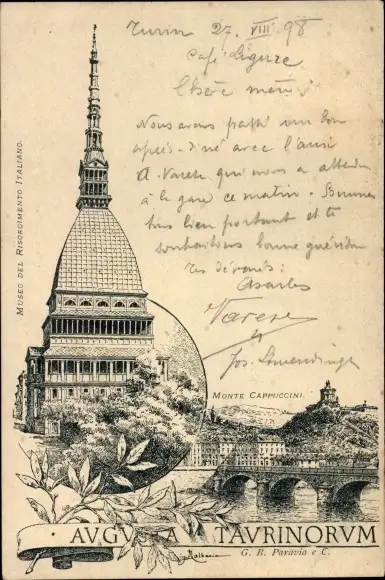 Turin 27. VIII. 98
Café Ligure
Chère
Nous avons passé un bon
après-dîné avec l'ami
A. Varese qui nous a
à la gare ce matin.
tous bien portant et te
souhaitons bonne guérison
Tes dévoués:
Varese
Jos.
MUSEO DEL RISORGIMENTO ITALIANO.
MONTE CAPPUCCINI.
AVGVSTA TAVRINORVM
G. B. Paravia e C.